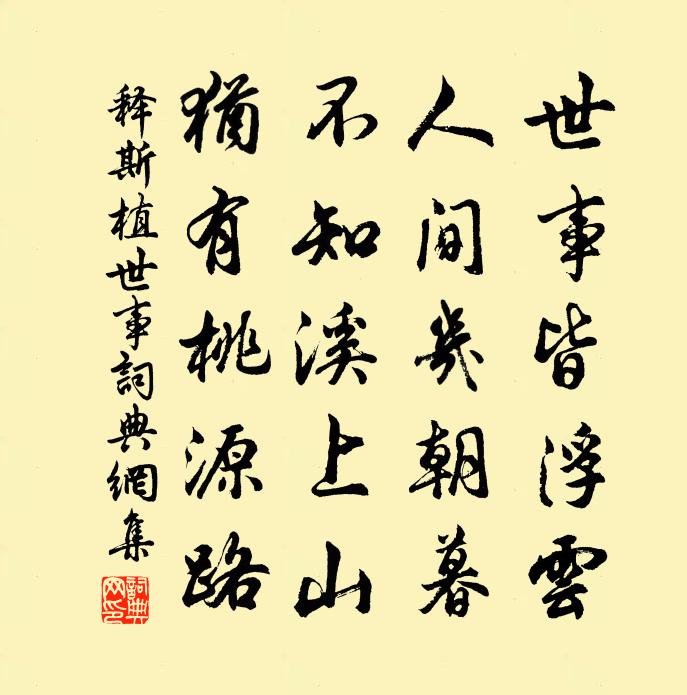 世事皆浮雲
人間幾朝暮
不知溪上山
猶有桃源路
释斯植世事詞典網集
詞典网印